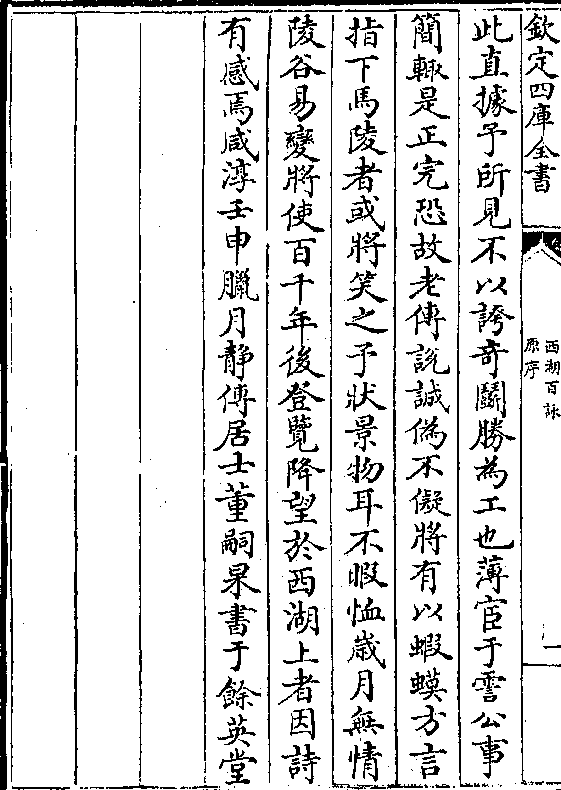 欽定四庫全書
西湖百詠
原序
一
此直據予所見不以誇奇鬬勝為工也薄宦于霅公事
簡輙是正完恐故老傳說誠偽不儗將有以蝦蟇方言
指下馬陵者或將笑之予狀景物耳不暇恤歳月無情
陵谷易變將使百千年後登覽降望於西湖上者因詩
有感焉咸淳壬申臘月静傳居士董嗣杲書于餘英堂